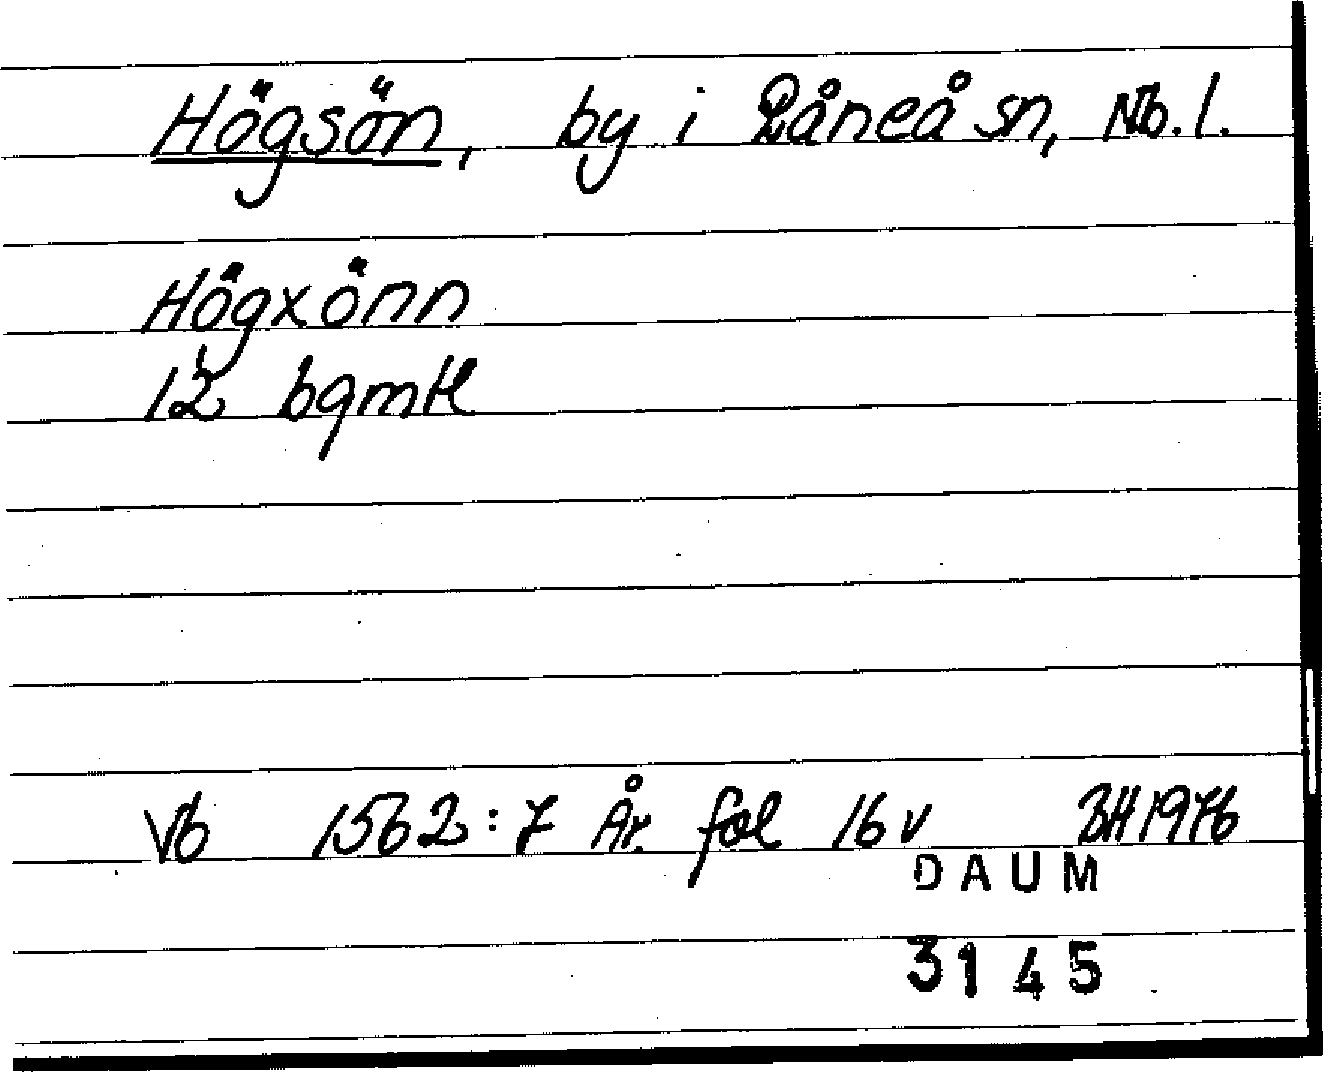 Högsön, by i Råneå sn, Nb. l.
Högxönn
12 bgmtl
Vb 1562:7 År. fol 16 v BH 1976
DAUM
3145